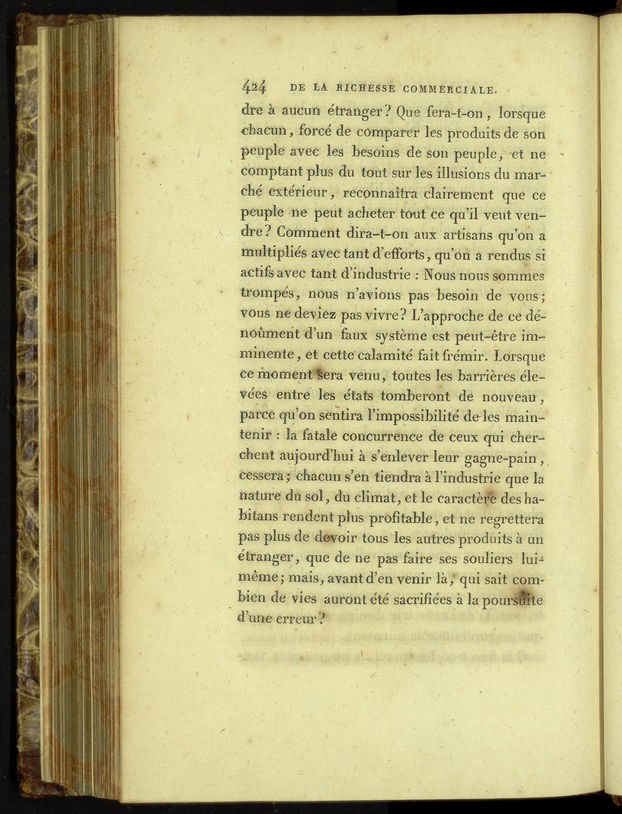 424 DE LA RICHESSE COMMERCIALE.
dre à aucun étranger? Que fera-t-on, lorsque
chacun, forcé de comparer les produits de son
peuple avec les besoins de son peuple, et ne
comptant plus du tout sur les illusions du mar-
ché extérieur, reconnaîtra clairement que ce
peuple ne peut acheter tout ce qu'il veut ven-
dre? Comment dira-t-on aux artisans qu'on a
multipliés avec tant d'efforts, qu'on a rendus si
actifs avec tant d'industrie : Nous nous sommes
trompés, nous n'avions pas besoin de vous;
vous ne deviez pas vivre? L'approche de ce dé-
noûment d'un faux système est peut-être im-
minente, et cette calamité fait frémir. Lorsque
ce moment sera venu, toutes les barrières éle-
vées entre les états tomberont de nouveau,
parce qu'on sentira l'impossibilité de les main-
tenir : la fatale concurrence de ceux qui cher-
chent aujourd'hui à s'enlever leur gagne-pain,
cessera; chacun s'en tiendra à l'industrie que la
nature du sol, du climat, et le caractère des ha-
bitans rendent plus profitable, et ne regrettera
pas plus de devoir tous les autres produits à un
étranger, que de ne pas faire ses souliers lui-
même; mais, avant d'en venir là, qui sait com-
bien de vies auront été sacrifiées à la poursuite
d'une erreur?